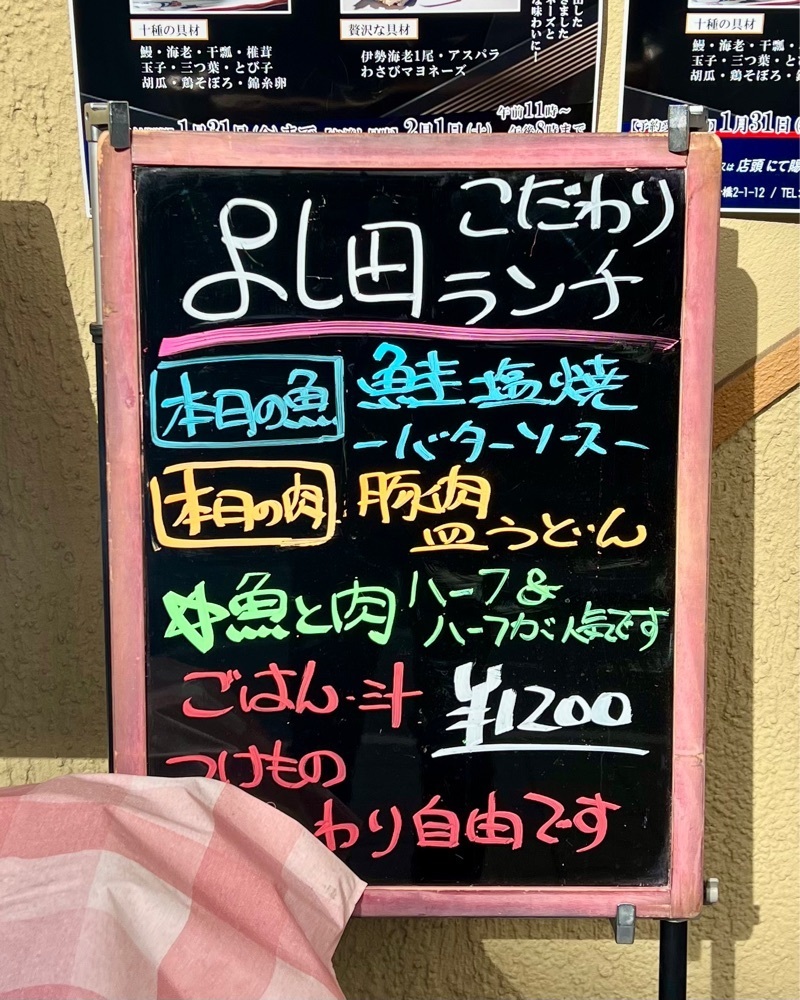 十種の具材
鰻・海老・干瓢・椎茸
玉子・三つ葉・とび子
胡瓜・鶏そぼろ・錦糸卵
贅沢な具材
伊勢海老1尾・アスパラ
わさびマヨネーズ
午前11時～
2月1日(土)
午後8時まで
十種の具材
鰻・海老・干瓢
玉子・三つ葉・
胡瓜・鶏そぼろ
1月31日
店頭にて
橋2-1-12 / TEL
よし田
こだわり
ランチ
本日の魚
鮭塩焼
ーバターソースー
本日の肉
豚肉
皿うどん
☆魚と肉
ハーフ&
ハーフが人気です
ごはん・汁
¥1200
つけもの
わり自由です